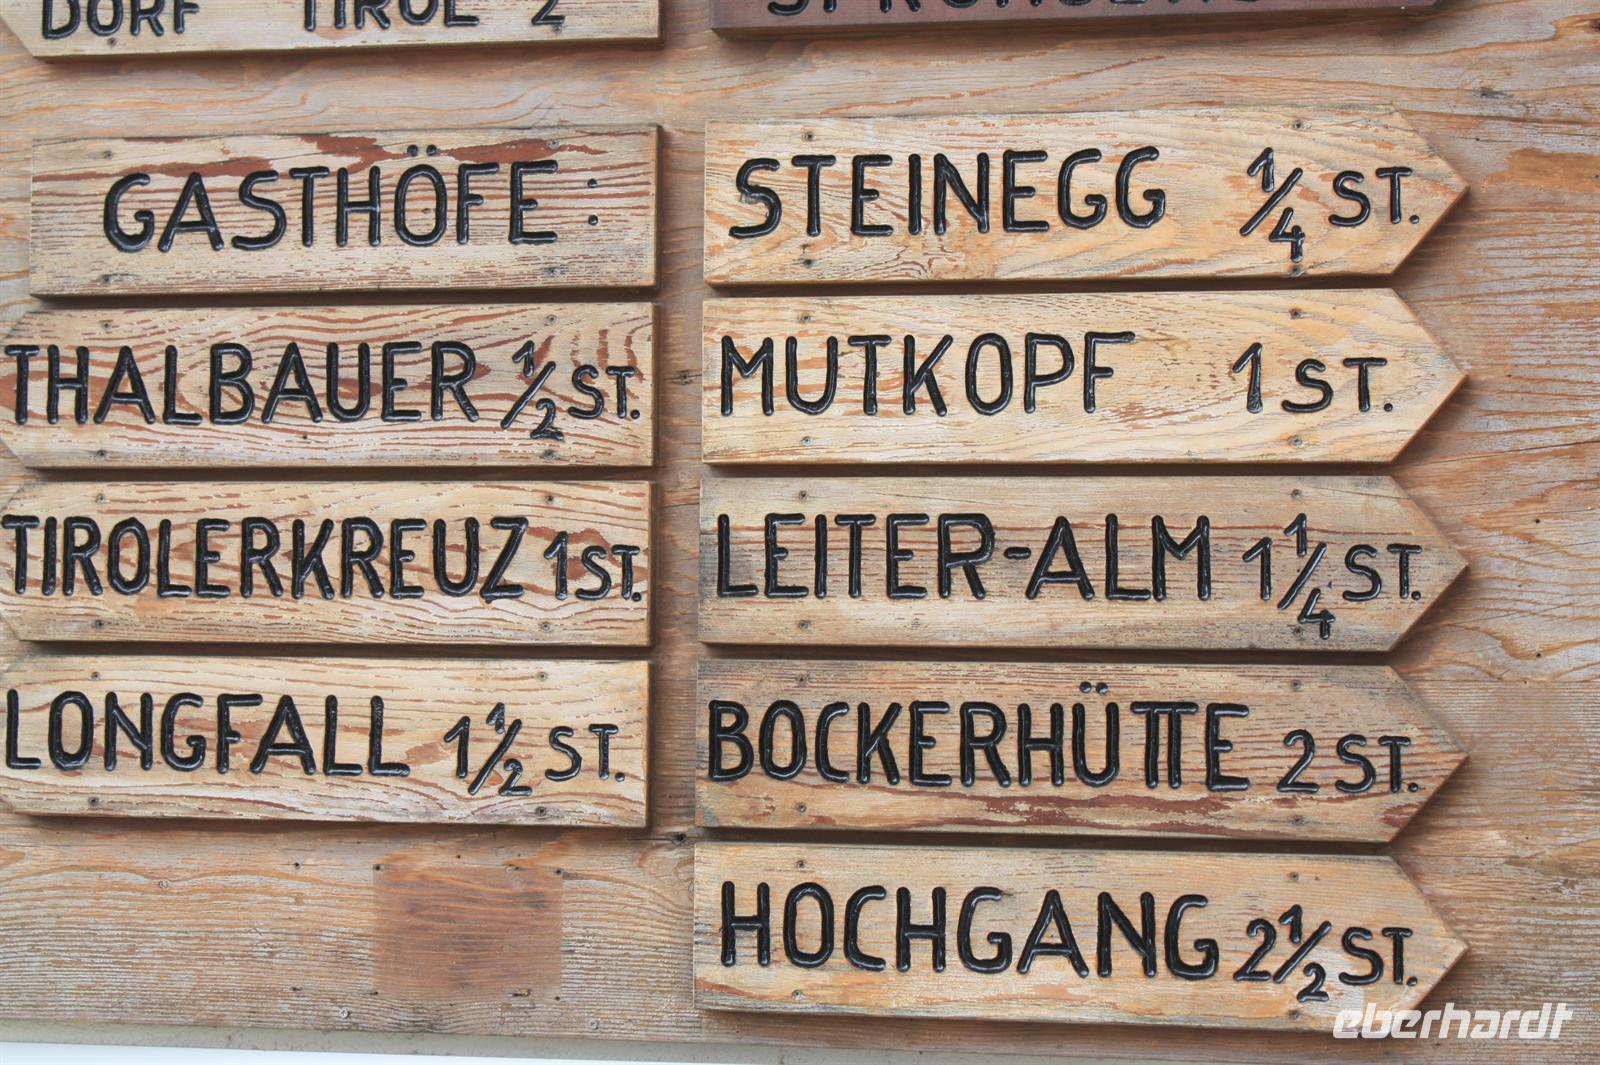 DORF TIROL 2
GASTHÖFE :
THALBAUER 1/2 ST.
TIROLERKREUZ 1 ST.
LONGFALL 1 1/2 ST.
STEINEGG 1/4 ST.
MUTKOPF 1 ST.
LEITER-ALM 1 1/4 ST.
BOCKERHÜTTE 2 ST.
HOCHGANG 2 1/2 ST.
eberhardt